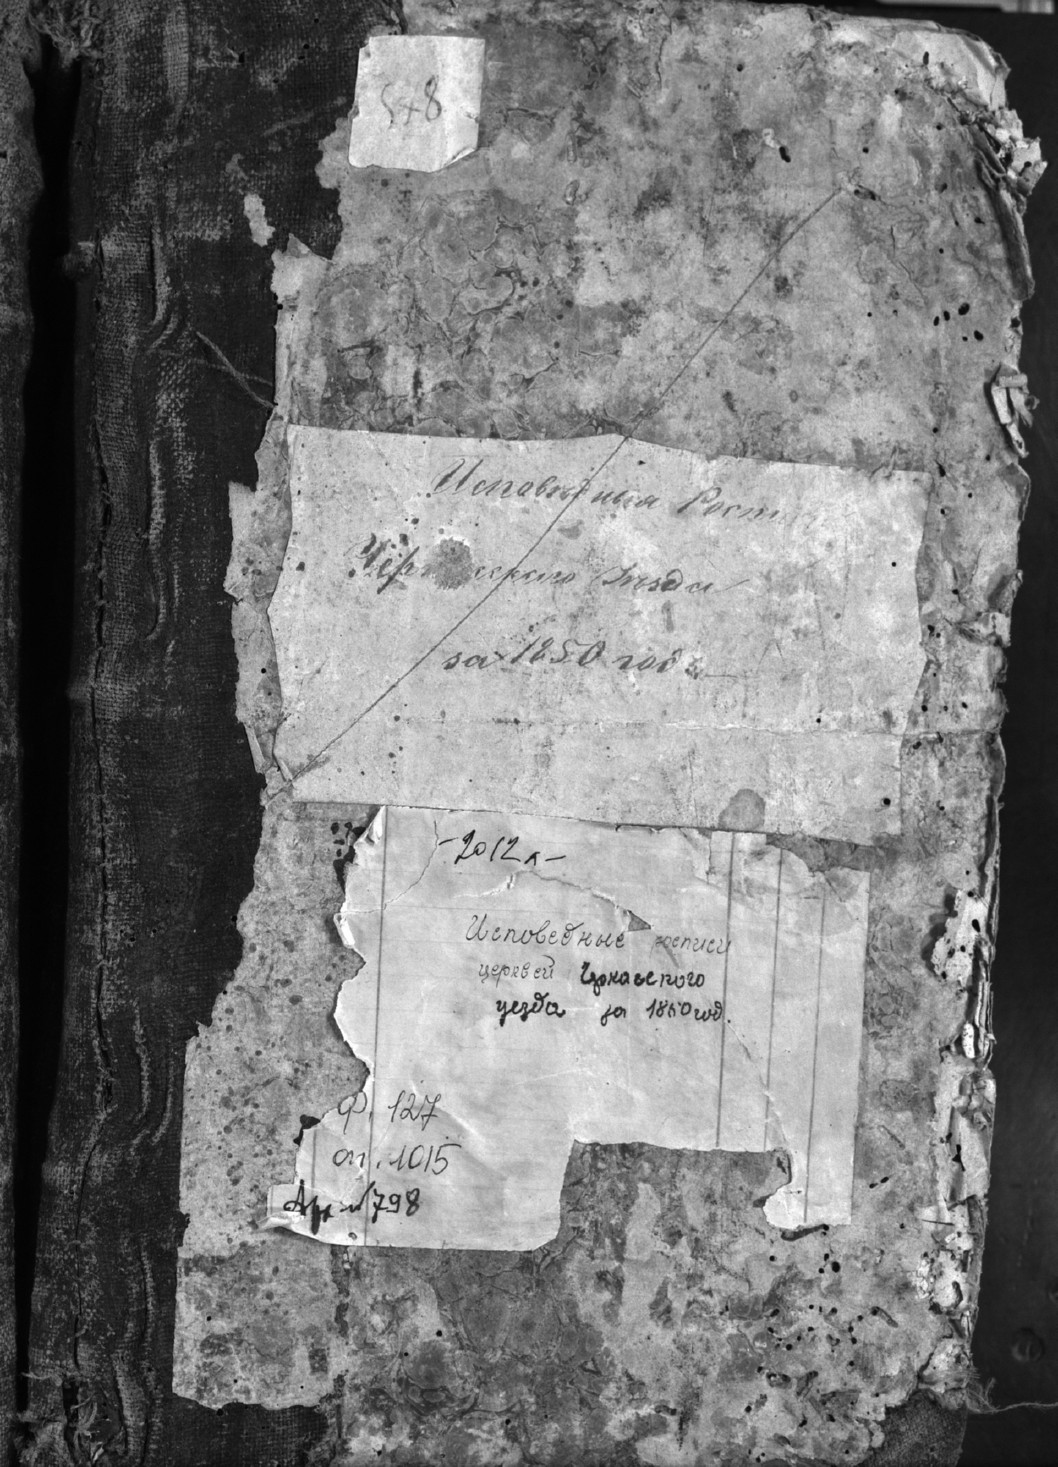 578
Исповедныя Росписи
Черкасского Уезда
за 1850 годъ
-2012 л-
Исповедные росписи
церквей Черкасского
уезда за 1850 год.
Ф. 127
оп. 1015
Арх № 798